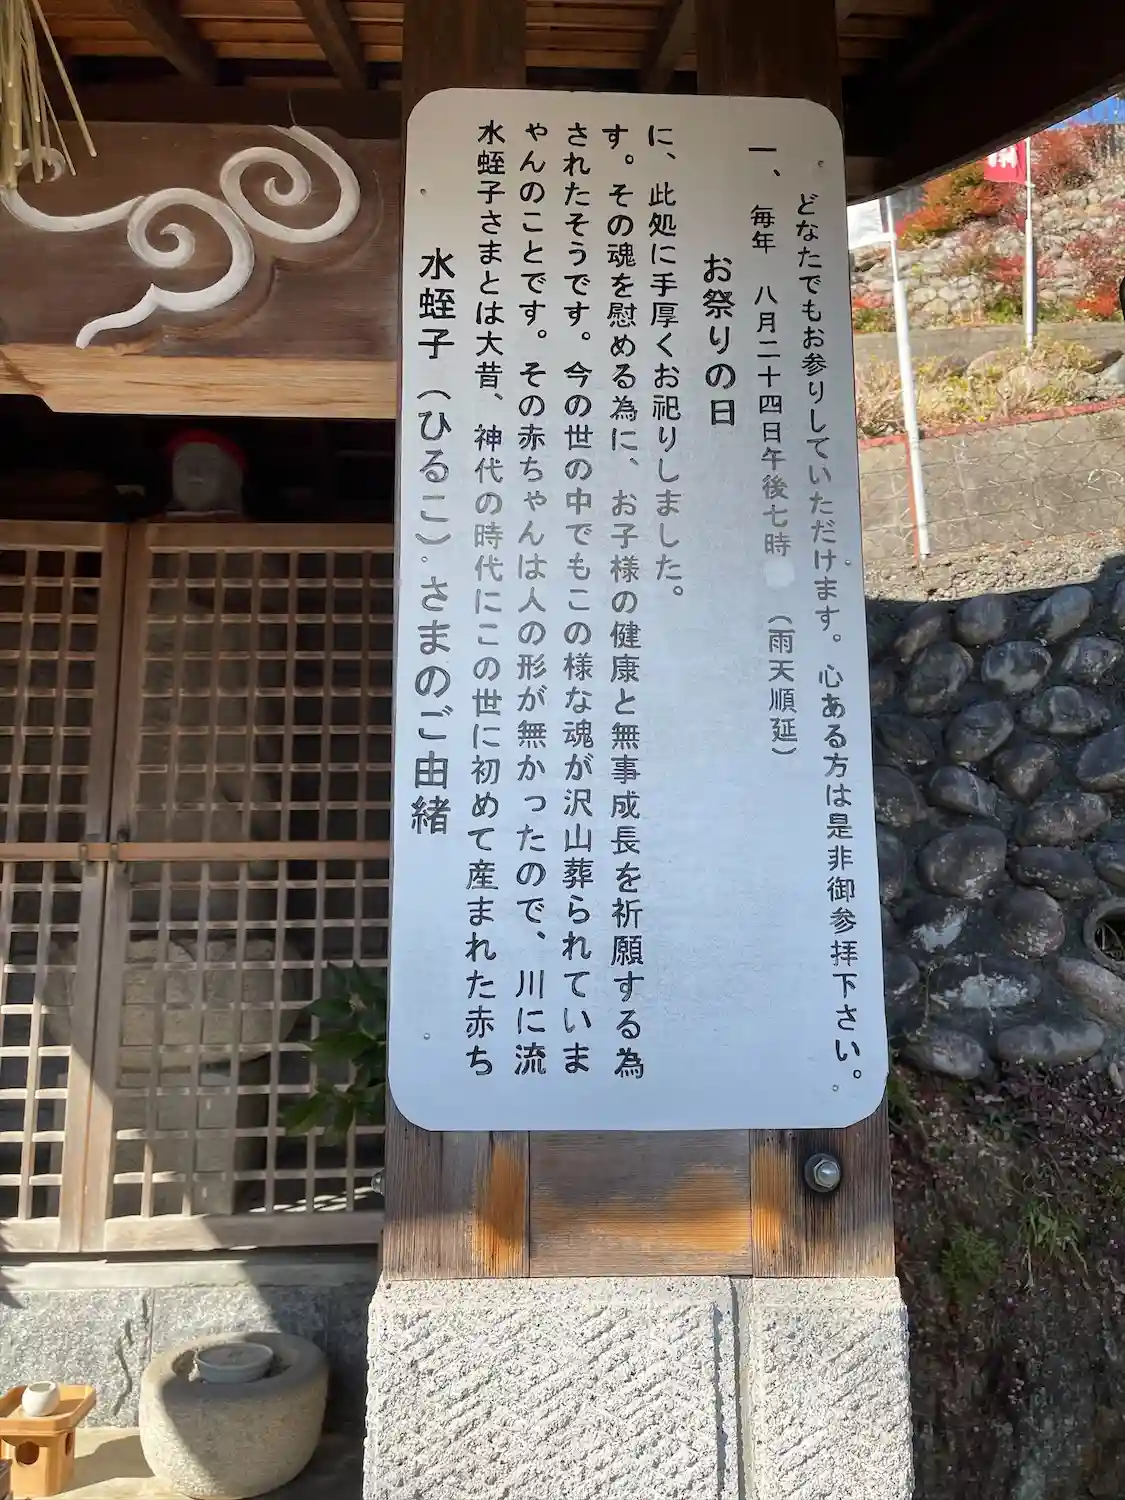 水蛭子（ひるこ）さまのご由緒
水蛭子さまとは大昔、神代の時代にこの世に初めて産まれた赤ち
ゃんのことです。その赤ちゃんは人の形が無かったので、川に流
されたそうです。今の世の中でもこの様な魂が沢山葬られていま
す。その魂を慰める為に、お子様の健康と無事成長を祈願する為
に、此処に手厚くお祀りしました。
お祭りの日
一、毎年　八月二十四日午後七時　（雨天順延）
どなたでもお参りしていただけます。心ある方は是非御参拝下さい。